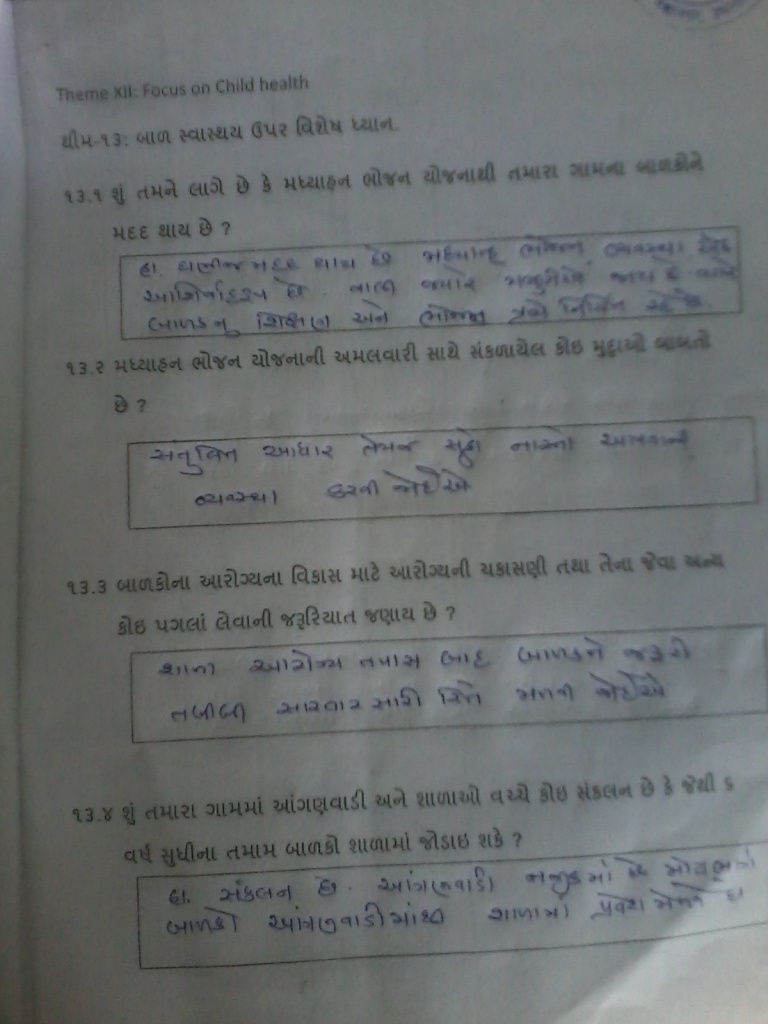 Theme XII: Focus on Child health
થીમ-૧૩: બાળ સ્વાસ્થય ઉપર વિશેષ ધ્યાન.
૧૩.૧ શું તમને લાગે છે કે મધ્યાહન ભોજન યોજનાથી તમારા ગામના બાળકોને
મદદ થાય છે ?
હા. ઘણીજ મદદ થાય છે મધ્યાન્હ ભોજન વ્યવસ્થા
આશિર્વાદરૂપ છે. વાલી જ્યારે મજુરીએ જાય છે ત્યારે
બાળકનું શિક્ષણ અને ભોજન પ્રત્યે નિશ્ચિંત રહે છે.
૧૩.૨ મધ્યાહન ભોજન યોજનાની અમલવારી સાથે સંકળાયેલ કોઇ મુદ્દાઓ બાબતો
છે ?
આધાર તેમજ સુકો નાસ્તો આપવાની
વ્યવસ્થા કરવી જોઈએ
૧૩.૩ બાળકોના આરોગ્યના વિકાસ માટે આરોગ્યની ચકાસણી તથા તેના જેવા અન્ય
કોઇ પગલાં લેવાની જરૂરિયાત જણાય છે ?
શાળા આરોગ્ય તપાસ બાદ બાળકને જરૂરી
તબીબી સારવાર સારી રિતે મળવી જોઈએ
૧૩.૪ શું તમારા ગામમાં આંગણવાડી અને શાળાઓ વચ્ચે કોઇ સંકલન છે કે જેથી ૬
વર્ષ સુધીના તમામ બાળકો શાળામાં જોડાઇ શકે ?
હા. સંકલન છે. આંગણવાડી નજીકમાં છે
બાળકો આંગણવાડીમાંથી શાળામાં પ્રવેશ મેળવે છે